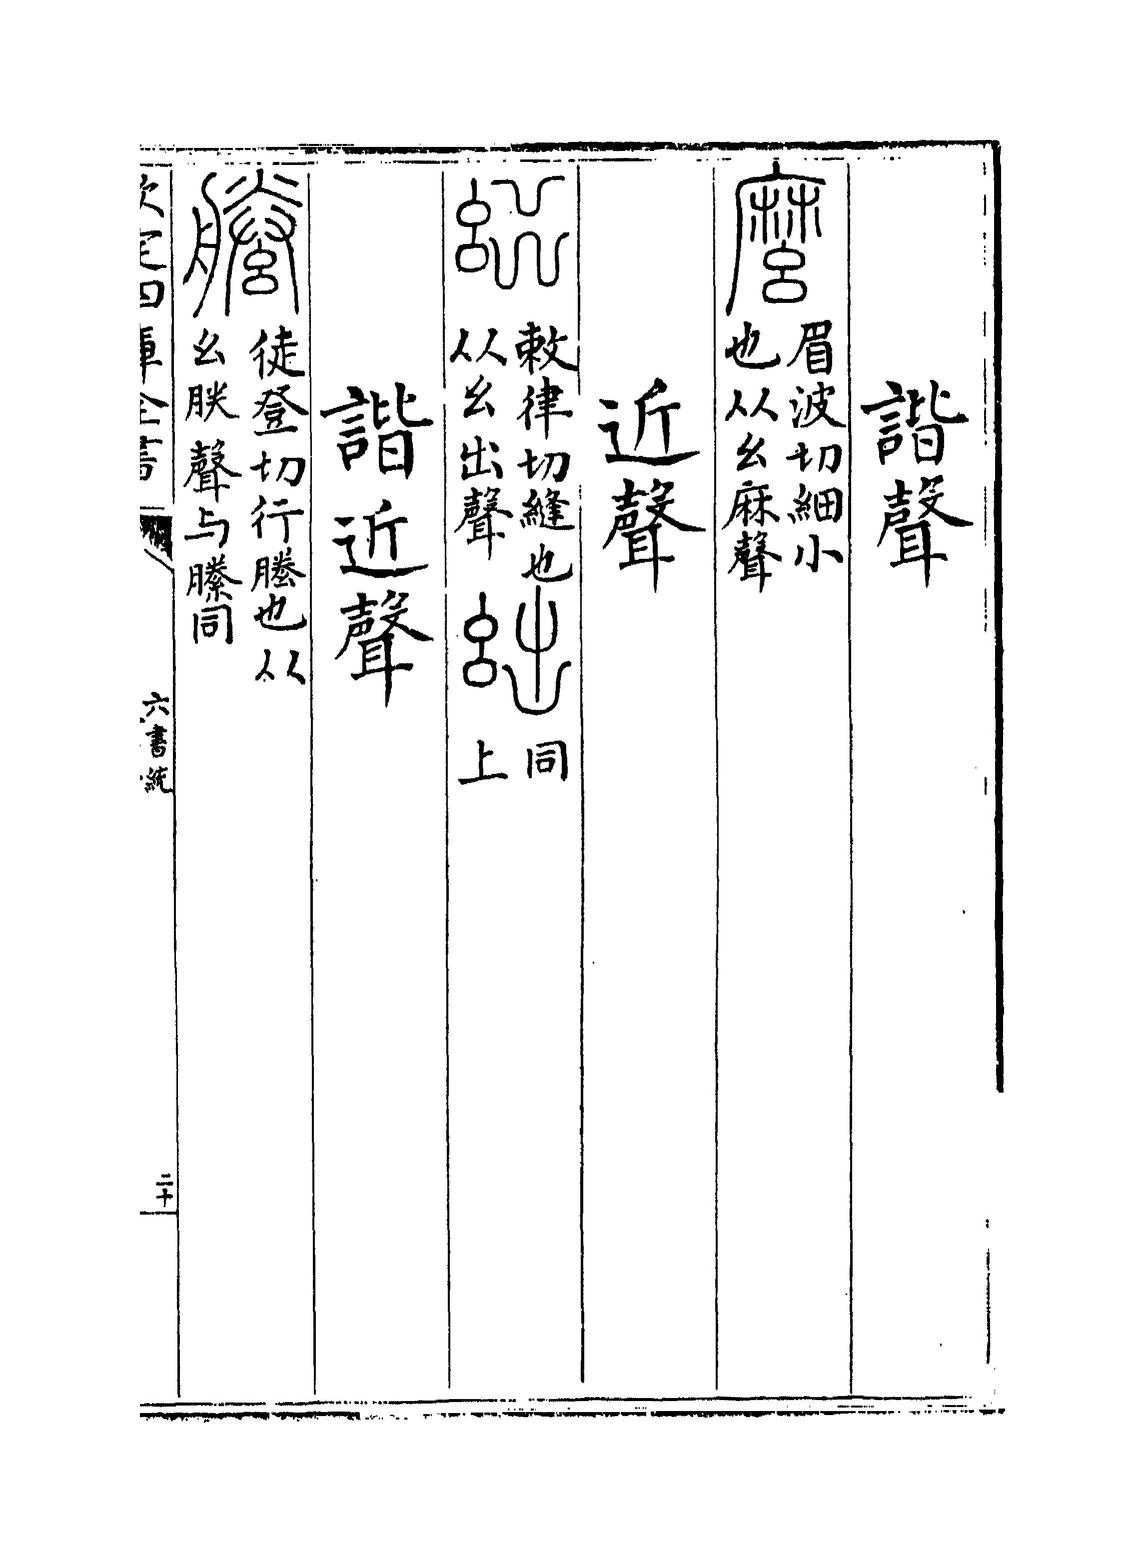 諧聲
麼
眉波切細小
也从幺麻聲
近聲
敕律切縫也
从幺出聲
同
上
諧近聲
徒登切行也从
幺朕聲与縢同
欽定四庫全書
六書統
二十